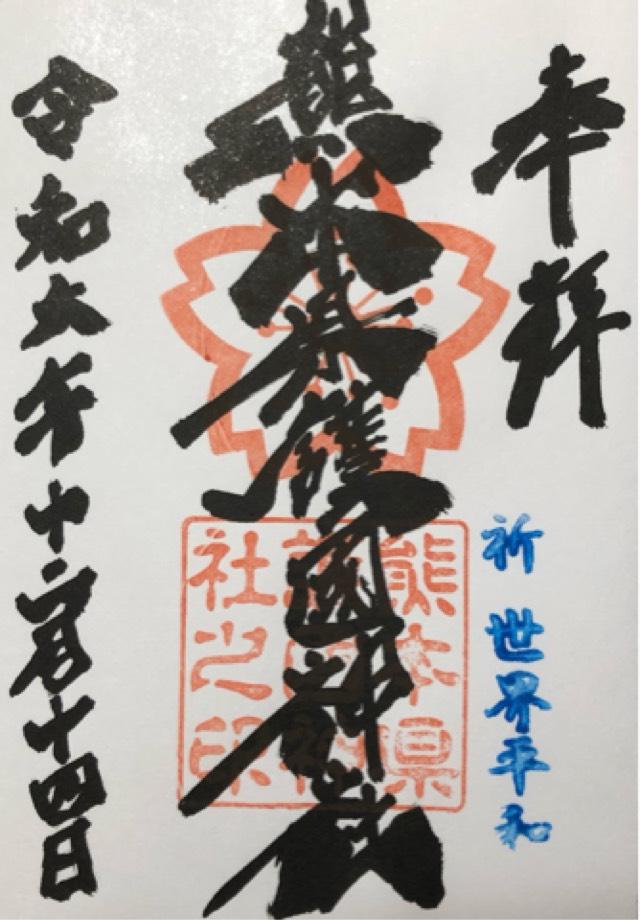 奉拝
祈 世界平和
熊本県護國神社
熊本県
護国神
社之印
令和六年十二月十四日